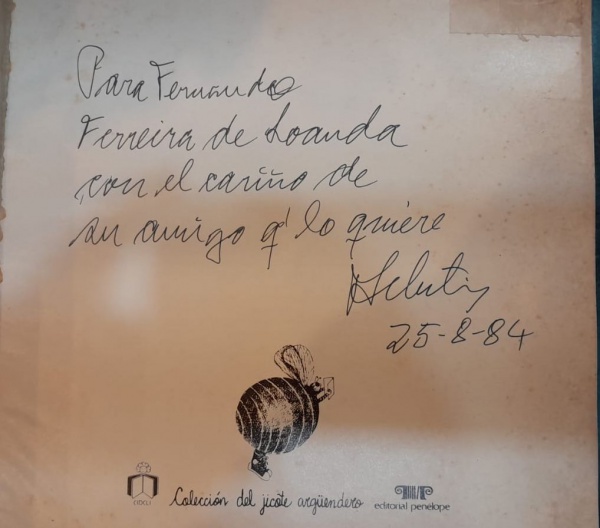 Para Fernando
Ferreira de Loanda
con el cariño de
su amigo q' lo quiere
25-8-84
Colección del jicote argüendero
editorial penelope